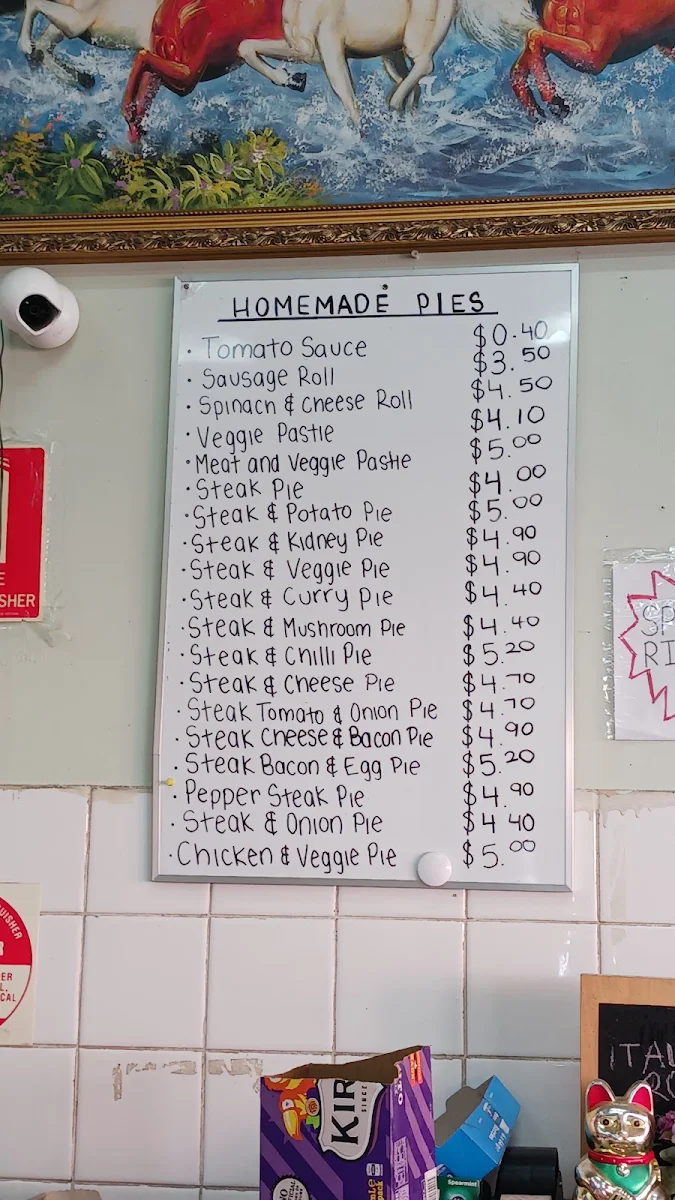 HOMEMADE PIES
· Tomato Sauce $0.40
· Sausage Roll $3.50
· Spinach & Cheese Roll $4.50
· Veggie Pastie $4.10
· Meat and Veggie Pastie $5.00
· Steak Pie $4.00
· Steak & Potato Pie $5.00
· Steak & Kidney Pie $4.90
· Steak & Veggie Pie $4.90
· Steak & Curry Pie $4.40
· Steak & Mushroom Pie $4.40
· Steak & Chilli Pie $5.20
· Steak & Cheese Pie $4.70
· Steak Tomato & Onion Pie $4.70
· Steak Cheese & Bacon Pie $4.90
· Steak Bacon & Egg Pie $5.20
· Pepper Steak Pie $4.90
· Steak & Onion Pie $4.40
· Chicken & Veggie Pie $5.00
SHER
SP
RI
UISHER
R
ER
L.
CAL
ITAL
KIR
SINCE
Spearmint